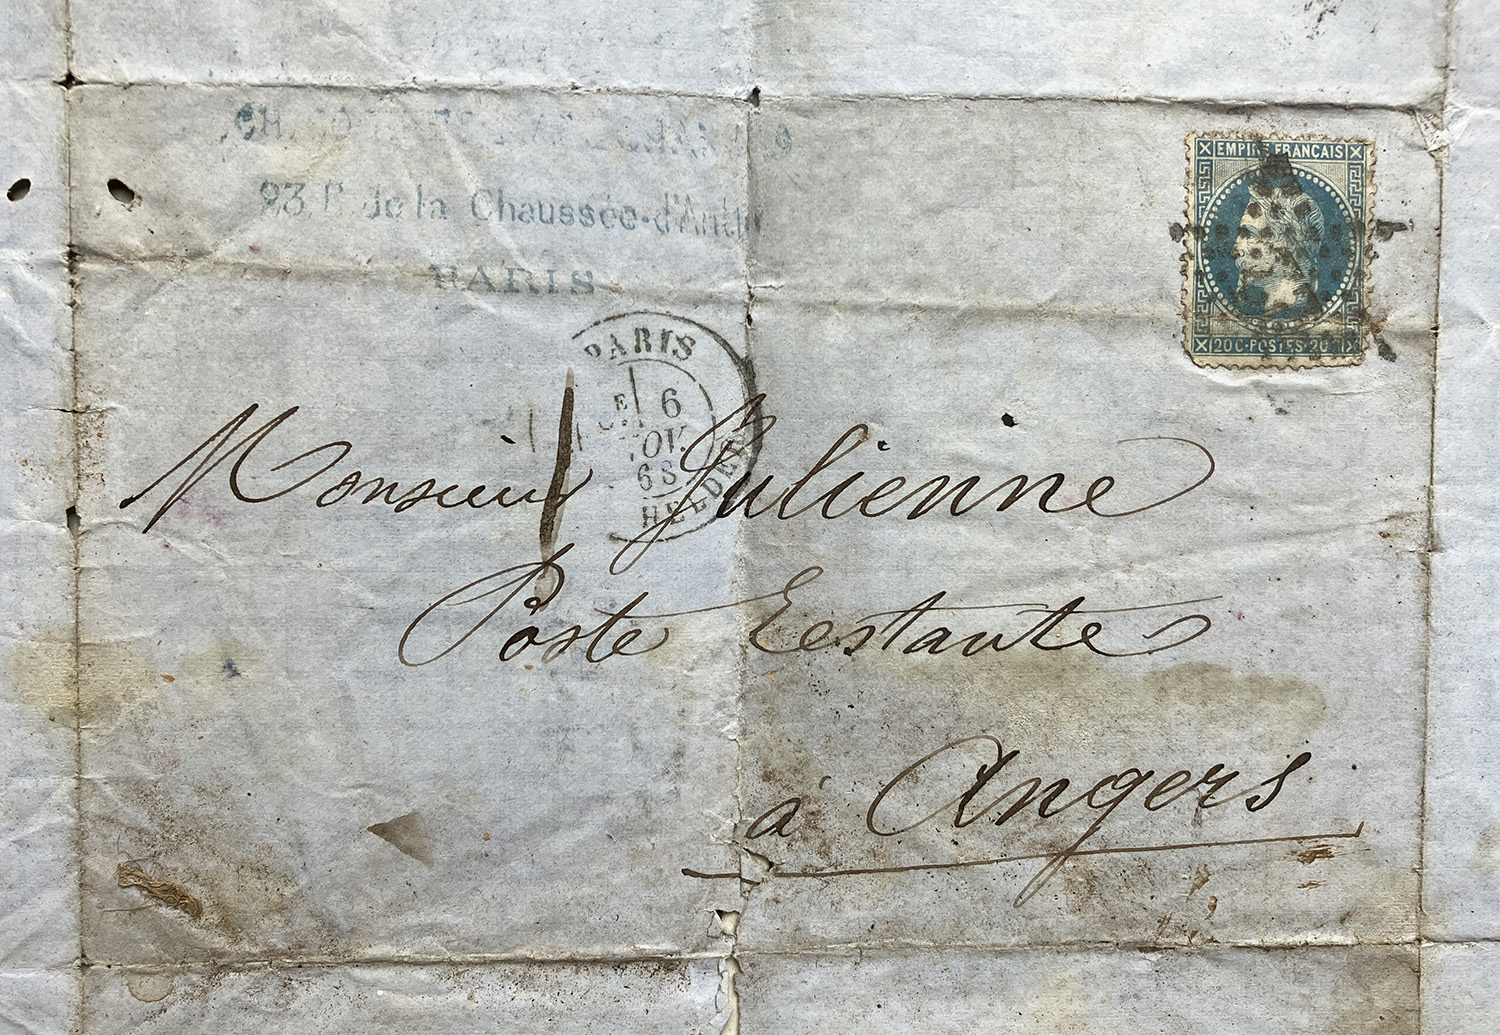 23, r. de la Chaussée-d'Antin
PARIS
EMPIRE FRANCAIS
20 C·POSTES·20 C
PARIS
E 6
NOV.
68
HELDER
Monsieur Julienne
Poste Restante
à Angers